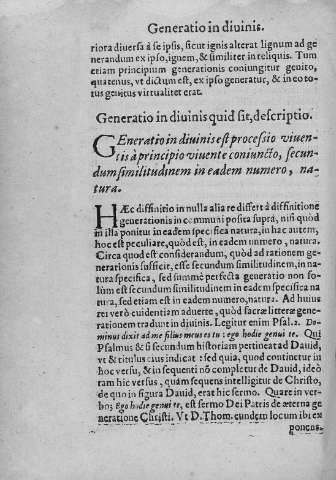 Generatio in diuinis.
riora diuersa à se ipsis, sicut ignis alterat lignum ad ge
nerandum ex ipso, ignem, & similiter in reliquis. Tum
etiam principium generationis coniungitur genito,
quatenus, vt dictum est, ex ipso generatur, & in eo to-
tus genitus virtualiter erat.
Generatio in diuinis quid sit, descriptio.
GEneratio in diuinis est processio viuen-
tis à principio viuente coniuncto, secun-
dum similitudinem in eadem numero, na-
tura.
HÆc diffinitio in nulla alia re differt à diffinitione
generationis in communi posita suprà, nisi quòd
in illa ponitur in eadem specifica natura, in hac autem,
hoc est peculiare, quòd est, in eadem numero, natura.
Circa quod est considerandum, quòd ad rationem ge-
nerationis sufficit, esse secundum similitudinem, in na-
tura specifica, sed summè perfecta generatio non so-
lùm est secundum similitudinem in eadem specifica na
tura, sed etiam est in eadem numero, natura. Ad huius
rei verò euidentiam aduerte, quòd sacræ litteræ gene-
rationem tradunt in diuinis. Legitur enim Psal. 2. Do-
minus dixit ad me filius meus es tu: ego hodie genui te. Qui
Psalmus & si secundum historiam pertineat ad Dauid,
vt & titulus eius indicat: sed quia, quod continetur in
hoc versu, & in sequenti nõ completur de Dauid, ideò
tam hic versus, quàm sequens intelligitur de Christo,
de quo in figura Dauid, erat hic sermo. Quare in ver-
bo; Ego hodie genui te, est sermo Dei Patris de æterna ge
neratione Christi. Vt D. Thom. eundem locum ibi ex
ponens.